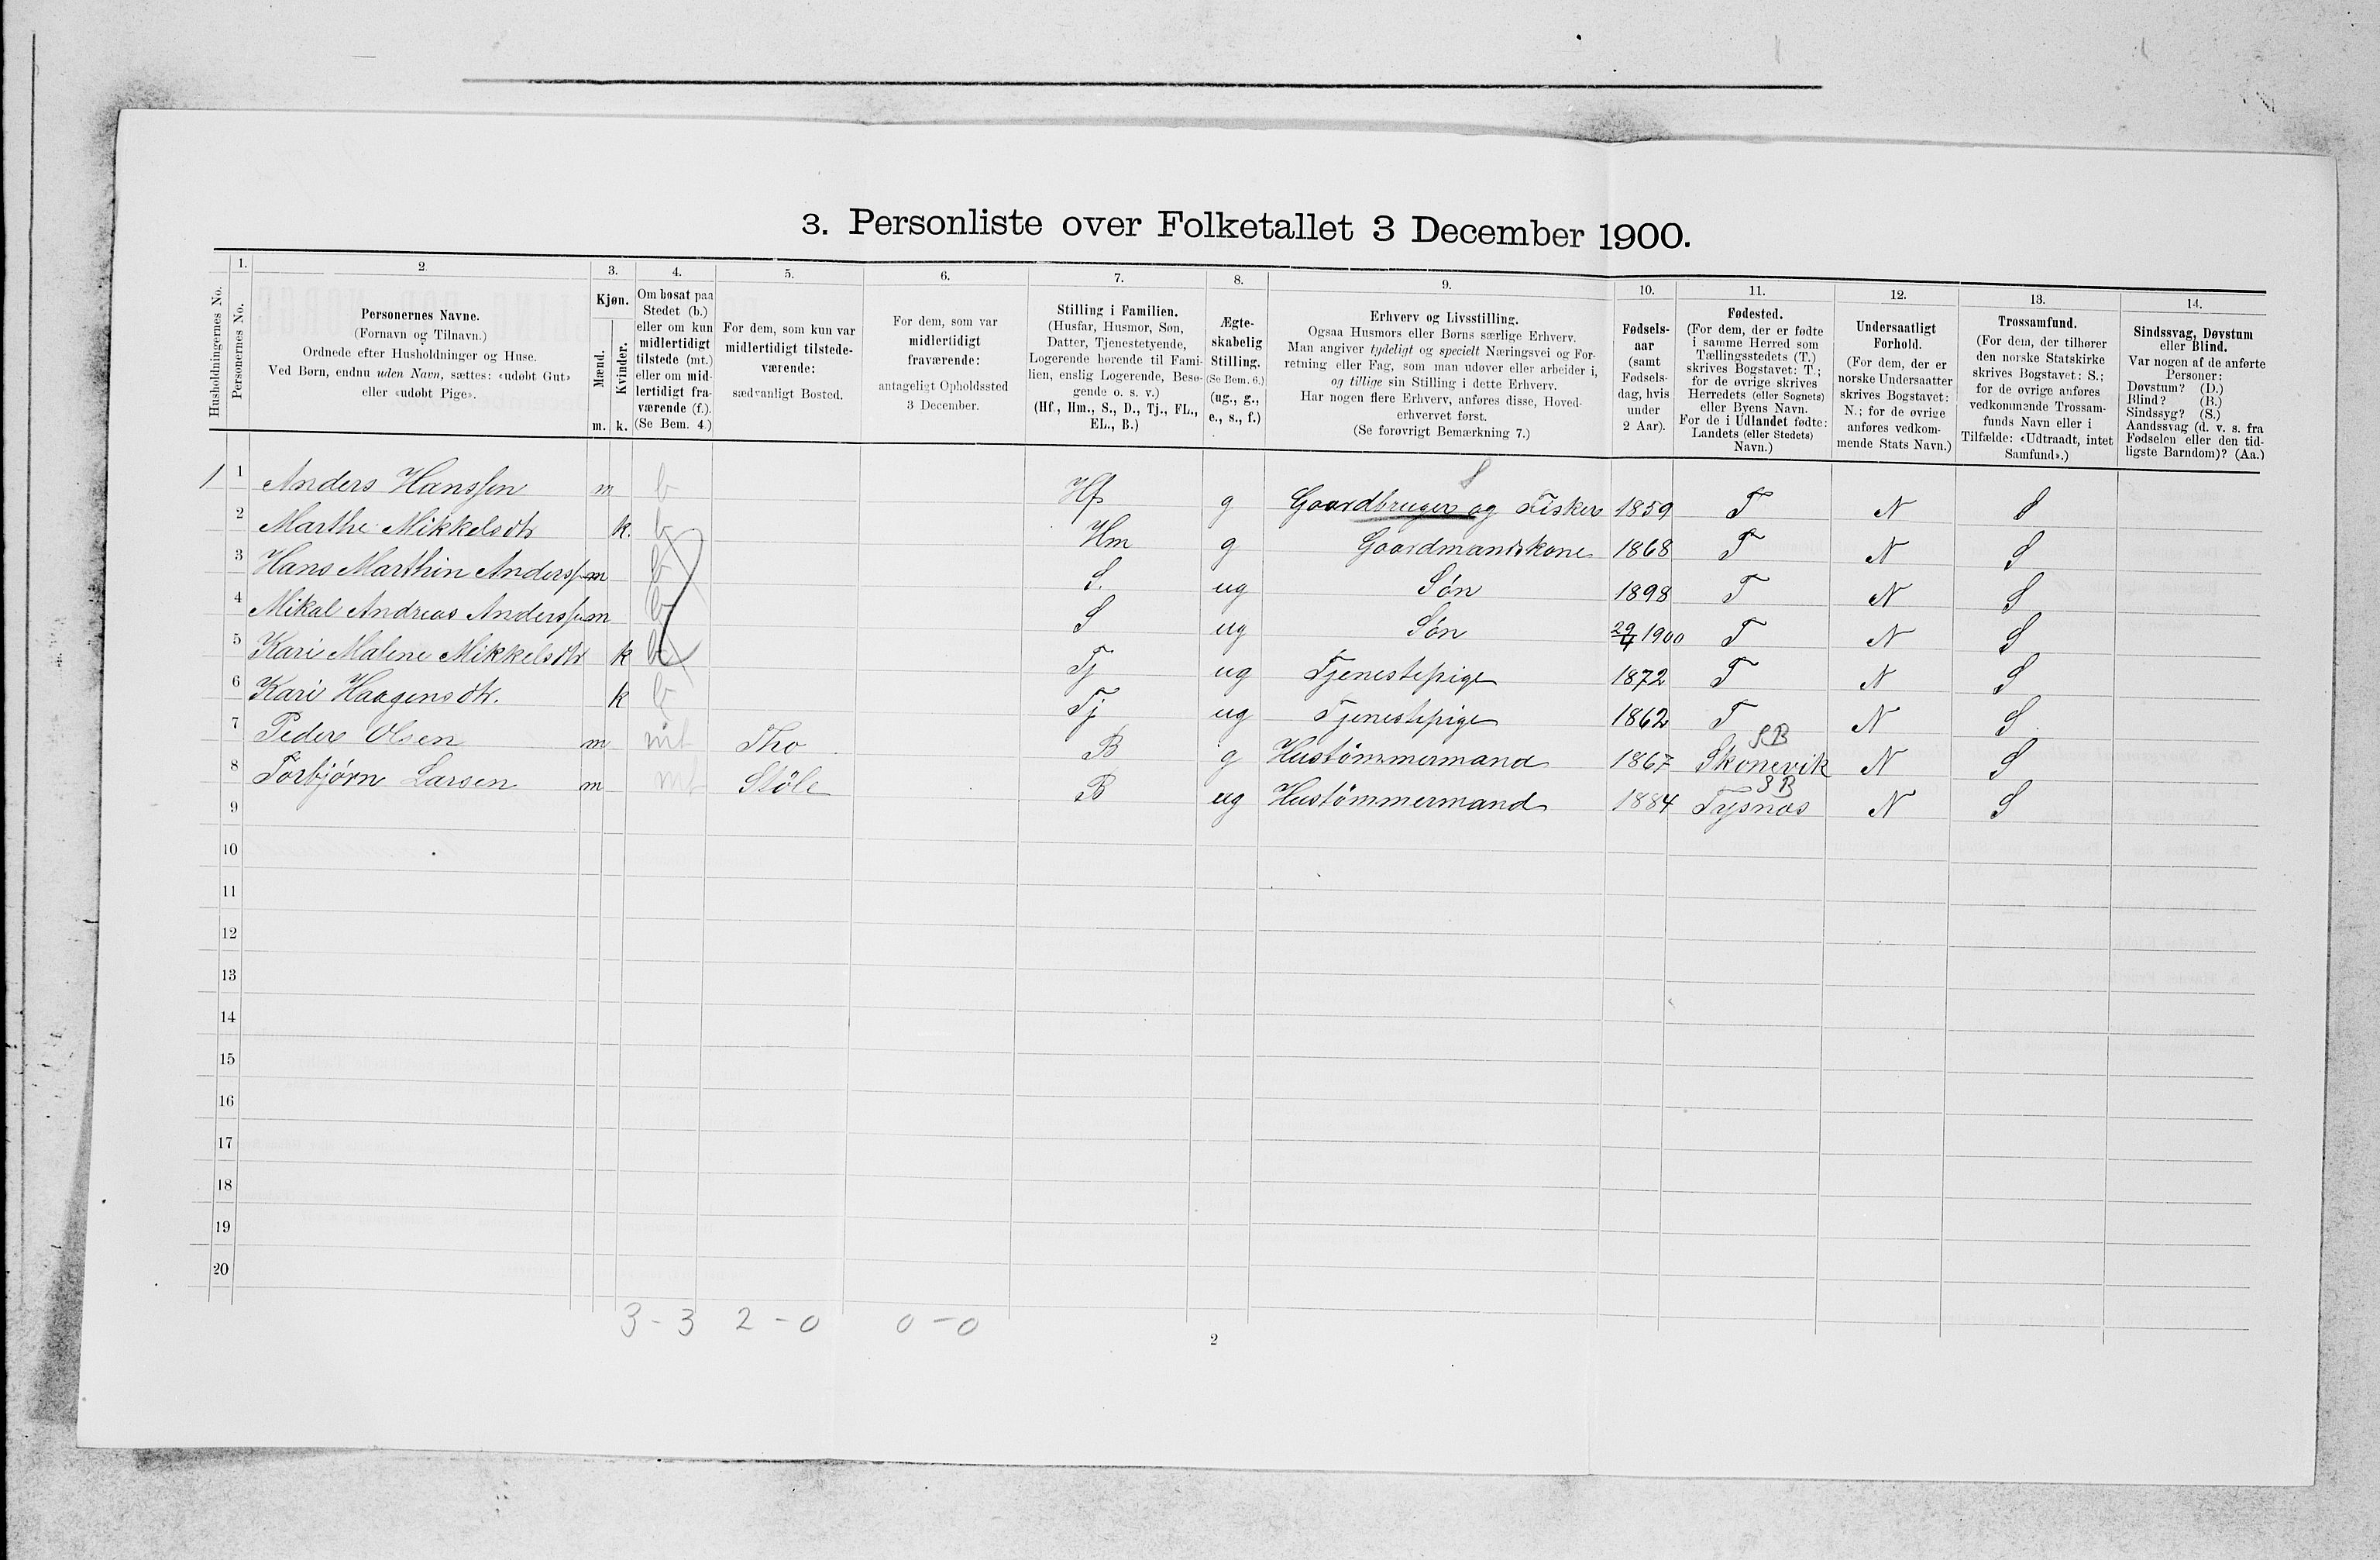 3. Personliste over Folketallet 3 December 1900.
Husholdningernes No.
1.
Personernes No.
2.
Personernes Navne.
(Fornavn og Tilnavn.)
Ordnede efter Husholdninger og Huse.
Ved Børn, endnu uden Navn, sættes: «udøbt Gut»
eller «udøbt Pige».
3.
Kjøn.
Mænd.
Kvinder.
m. k.
4.
Om bosat paa
Stedet (b.)
eller om kun
midlertidigt
tilstede (mt.)
eller om mid-
lertidigt fra-
værende (f.).
(Se Bem. 4.)
5.
For dem, som kun var
midlertidigt tilstede-
værende:
sædvanligt Bosted.
6.
For dem, som var
midlertidigt
fraværende:
antageligt Opholdssted
3 December.
7.
Stilling i Familien.
(Husfar, Husmor, Søn,
Datter, Tjenestetyende,
Logerende hørende til Fami-
lien, enslig Logerende, Besø-
gende o. s. v.)
(Hf., Hm., S., D., Tj., FL.,
EL., B.)
8.
Ægte-
skabelig
Stilling.
(Se Bem. 6.)
(ug., g.,
e., s., f.)
9.
Erhverv og Livsstilling.
Ogsaa Husmors eller Børns særlige Erhverv.
Man angiver tydeligt og specielt Næringsvei og For-
retning eller Fag, som man udøver eller arbeider i,
og tillige sin Stilling i dette Erhverv.
Har nogen flere Erhverv, anføres disse, Hoved-
erhvervet først.
(Se forøvrigt Bemærkning 7.)
10.
Fødsels-
aar
(samt
Fødsels-
dag, hvis
under
2 Aar).
11.
Fødested.
(For dem, der er fødte
i samme Herred som
Tællingsstedets (T.)
skrives Bogstavet: T.;
for de øvrige skrives
Herredets (eller Sognets)
eller Byens Navn.
For de i Udlandet fødte:
Landets (eller Stedets)
Navn.)
12.
Undersaatligt
Forhold.
(For dem, der er
norske Undersaatter
skrives Bogstavet:
N.; for de øvrige
anføres vedkom-
mende Stats Navn.)
13.
Trossamfund.
(For dem, der tilhører
den norske Statskirke
skrives Bogstavet: S.;
for de øvrige anføres
vedkommende Trossam-
funds Navn eller i
Tilfælde: «Udtraadt, intet
Samfund».)
14.
Sindssvag, Døvstum
eller Blind.
Var nogen af de anførte
Personer:
Døvstum? (D.)
Blind? (B.)
Sindssyg? (S.)
Aandssvag (d. v. s. fra
Fødselen eller den tid-
ligste Barndom)? (Aa.)
1 1 Anders Hanssen m b Hf g Gaardbruger og Fisker 1859 T N S
2 Marthe Mikkelsdtr k. b Hm g Gaardmandskone 1868 T N S
3 Hans Marthin Anderssen m b S. ug Søn 1898 T N S
4 Mikal Andreas Anderssen m b S ug Søn 29/4 1900 T N S
5 Kari Malene Mikkelsdtr k b Tj ug Tjenestepige 1872 T N S
6 Kari Haagensdtr. k b Tj ug Tjenestepige 1862 T N S
SB
7 Peder Olsen m mt Tho B g Hustömmermand 1867 Skonevik N S
SB
8 Torbjørn Larsen m mt Støle B ug Hustömmermand 1884 Tysnæs N S
9
10
11
12
13
14
15
16
17
18
19
20
3 - 3 2 - 0 0 - 0
2